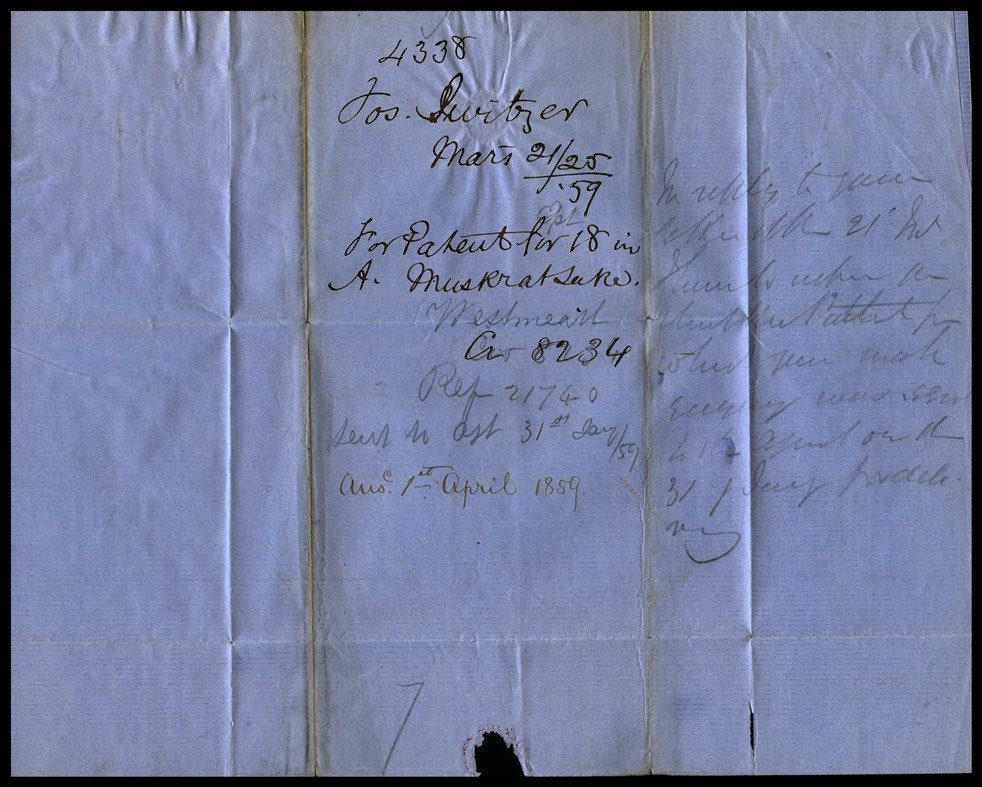 4338
Jos. Switzer
Mars 21/25
'59
For Patent for 18 in
A. Muskrat Lake.
Westmeath
Cr 8234
Ref 21740
Sent to agt 31st Jany/59
Ansd. 1st April 1859.
In reply to your
letter of the 21st Inst
the Patent for
which you make
enquiry was sent
to the Agent on the
31 of Jany for deli-
very
7